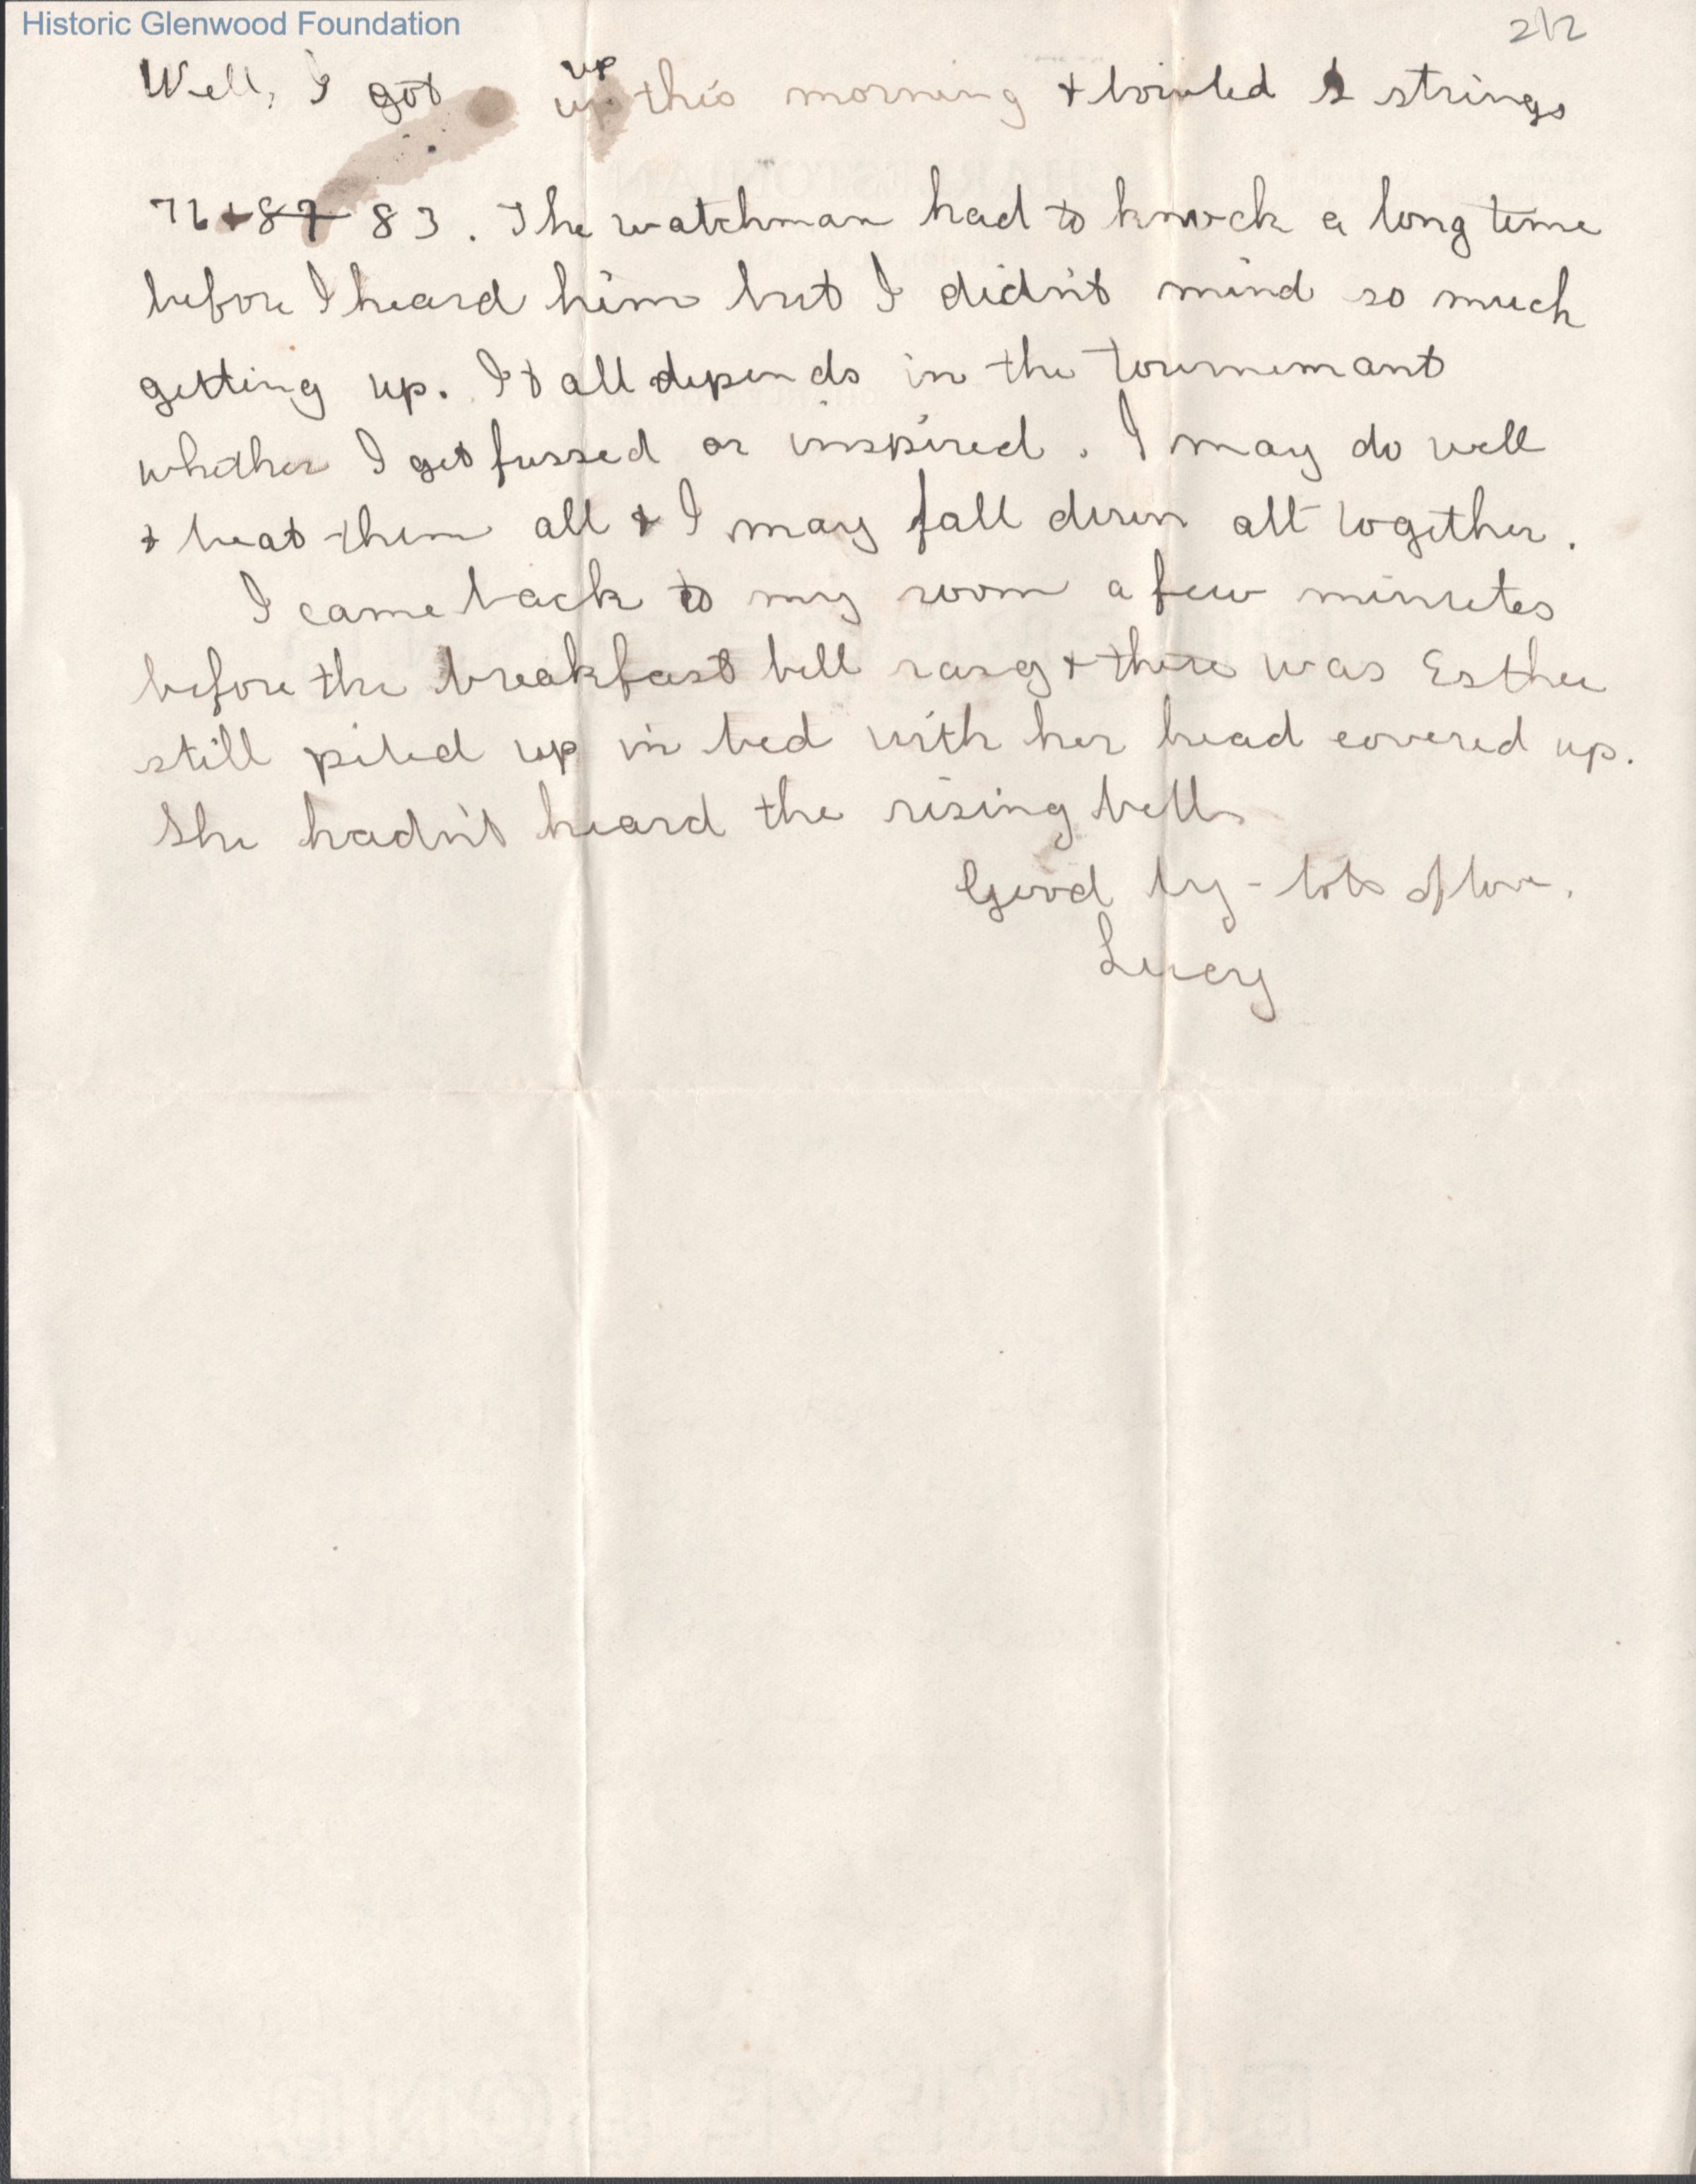 Historic Glenwood Foundation
2\2
Well, I got up up this morning + bowled 2 strings
76 + 87 83. The watchman had to knock a long time
before I heard him but I didn't mind so much
getting up. It all depends in the tournemant
whether I get fussed or inspired. I may do well
+ beat them all + I may fall down all together.
I came back to my room a few minutes
before the breakfast bell rang + there was Esther
still piled up in bed with her head covered up.
She hadn't heard the rising bell.
Good by - lots of love.
Lucy